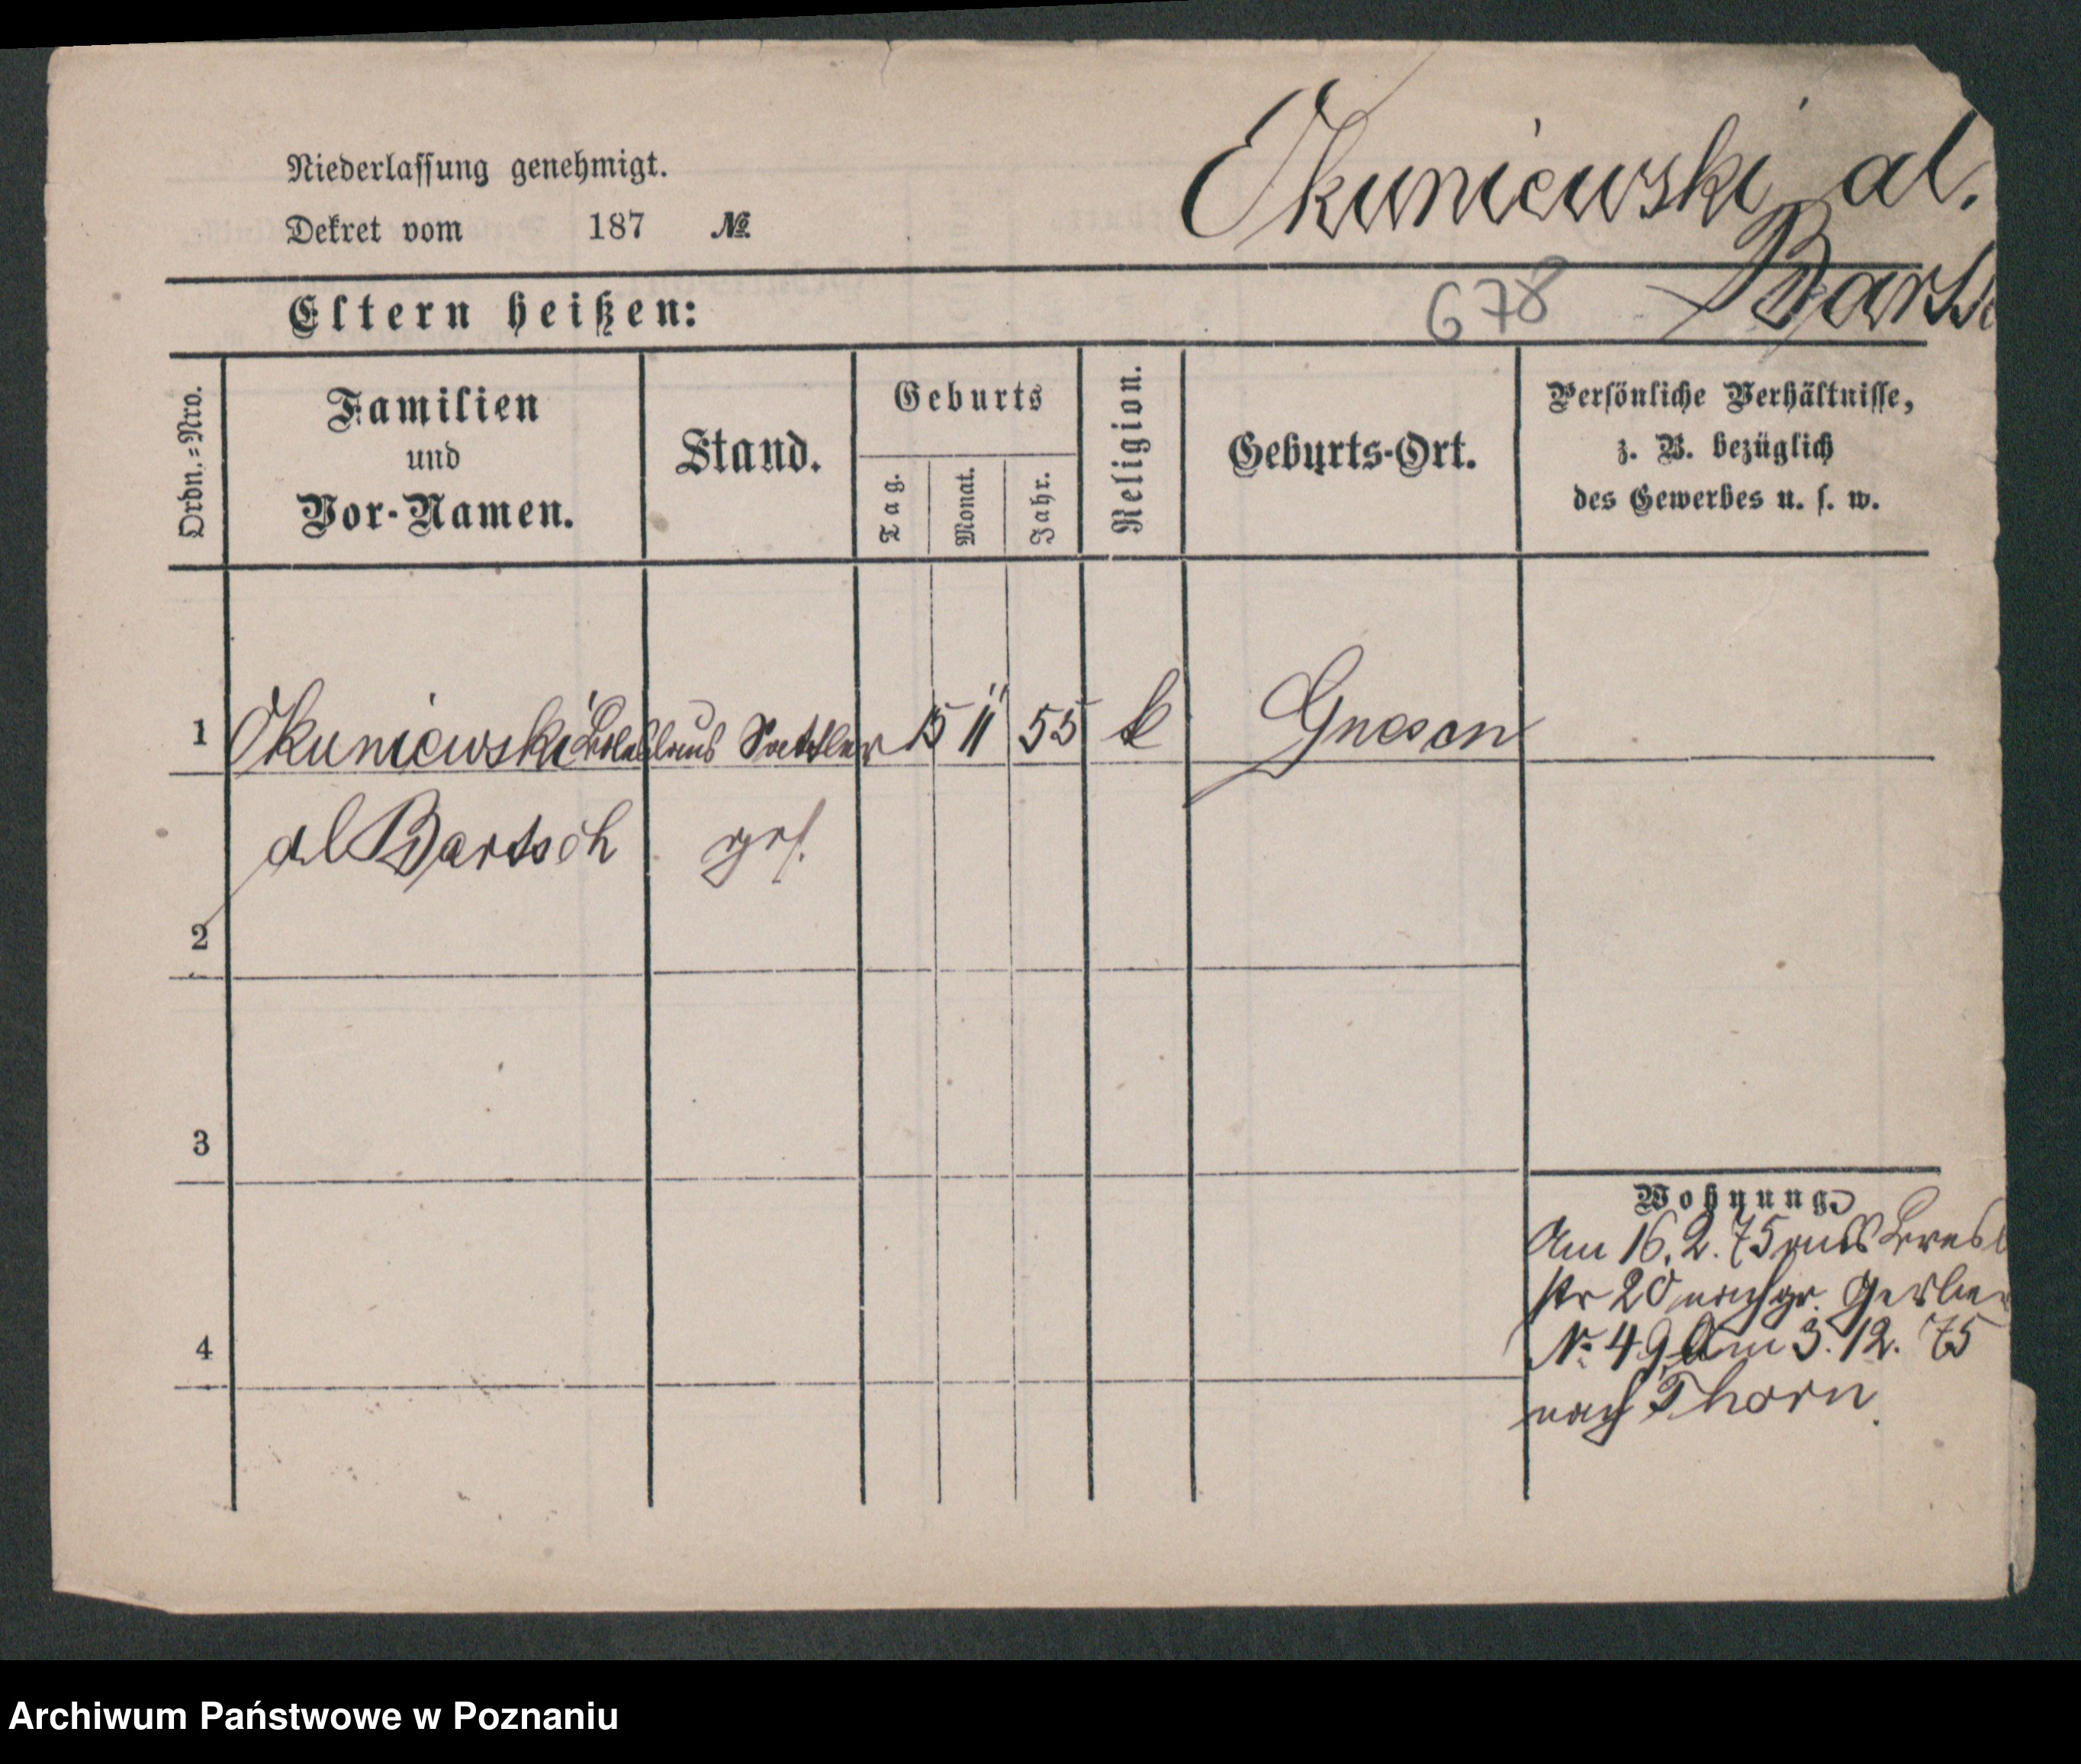 Okuniewski al.
Niederlassung genehmigt.
Dekret vom 187 №
Barts
Eltern heißen:
678
Ordn.-Nro.
Familien
und
Vor-Namen.
Stand.
Geburts
Tag.
Monat.
Jahr.
Religion.
Geburts-Ort.
Persönliche Verhältnisse,
z. B. bezüglich
des Gewerbes u. s. w.
1 Okuniewski Boleslaus Sattler 15 11 55 k Gnesen
al Bartsch
2
3
4
Wohnung
Am 16. 2. 75 aus Bresl
str 20 nach gr. Gerber
№ 49. Am 3. 12. 75
nach Thorn.
Archiwum Państwowe w Poznaniu